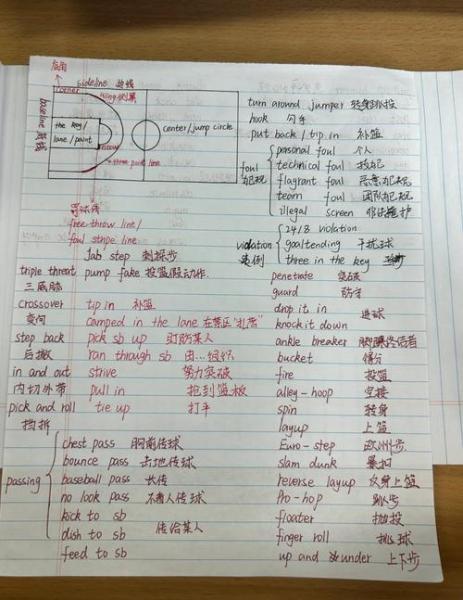 底角
sideline 边线
corner
wing 侧翼
baseline 底线
the key/
lane/paint
elbow
center/jump circle
three point line
罚球线
free throw line/
foul stripe line
Jab step 刺探步
triple threat pump fake 投篮假动作
三威胁
crossover tip in 补篮
变向 camped in the lane 在禁区"扎营"
step back pick sb up 盯防某人
后撤 ran through sb
in and out strive 努力突破
内切外带 pull in 抢到篮板
pick and roll tie up 打平
挡拆
passing
chest pass 胸前传球
bounce pass 击地传球
baseball pass 长传
no look pass 不看人传球
kick to sb
dish to sb 传给某人
feed to sb
turn around jumper 转身跳投
hook 勾手
put back/tip in 补篮
foul 犯规
pasonal foul 个人
technical foul 技犯
flagrant foul 恶意犯规
team foul 团队犯规
illegal screen 非法掩护
violation 违例
24/8 violation
goaltending 干扰球
three in the key
penetrate 突破
guard 防守
drop it in 进球
knock it down
ankle breaker 脚踝终结者
bucket 得分
fire 投篮
alley-hoop 空接
spin 转身
layup 上篮
Euro-step 欧洲步
slam dunk 暴扣
reverse layup 反身上篮
Pro-hop 跳步
floater 抛投
finger roll 挑球
up and under 上下步